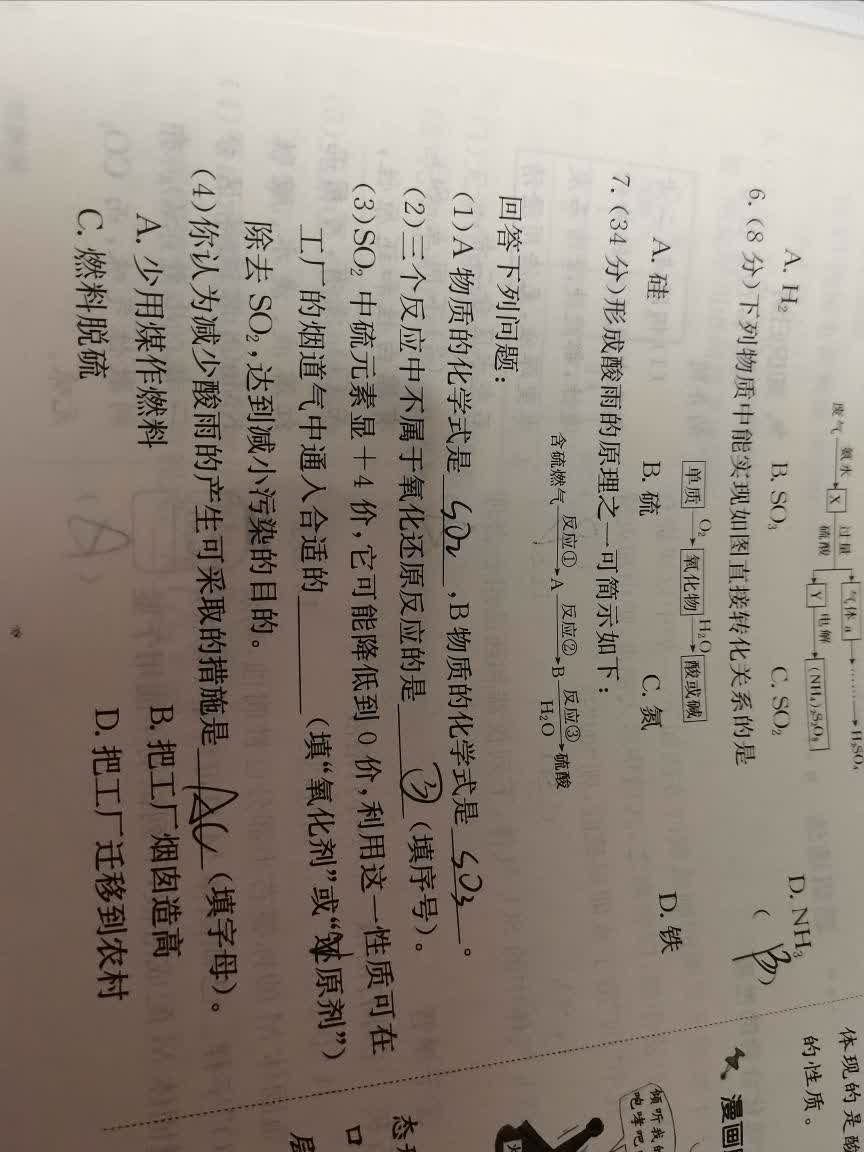 废气 氨水 X 过量硫酸 气体a …… H₂SO₄
Y 电解 (NH₄)₂S₂O₈
A. H₂ B. SO₃ C. SO₂ D. NH₃
6. (8分)下列物质中能实现如图直接转化关系的是 ( B )
单质 O₂ 氧化物 H₂O 酸或碱
A. 硅 B. 硫 C. 氮 D. 铁
7. (34分)形成酸雨的原理之一可简示如下:
含硫燃气 反应① A 反应② B 反应③ H₂O 硫酸
回答下列问题:
(1)A物质的化学式是 SO₂ ,B物质的化学式是 SO₃ 。
(2)三个反应中不属于氧化还原反应的是 ③ (填序号)。
(3)SO₂中硫元素显+4价,它可能降低到0价,利用这一性质可在
工厂的烟道气中通入合适的______(填“氧化剂”或“还原剂”)
除去SO₂,达到减小污染的目的。
(4)你认为减少酸雨的产生可采取的措施是 AC (填字母)。
A. 少用煤作燃料 B. 把工厂烟囱造高
C. 燃料脱硫 D. 把工厂迁移到农村
体现的是酸
的性质。
漫画
倾听我的
咆哮吧
态
口
层